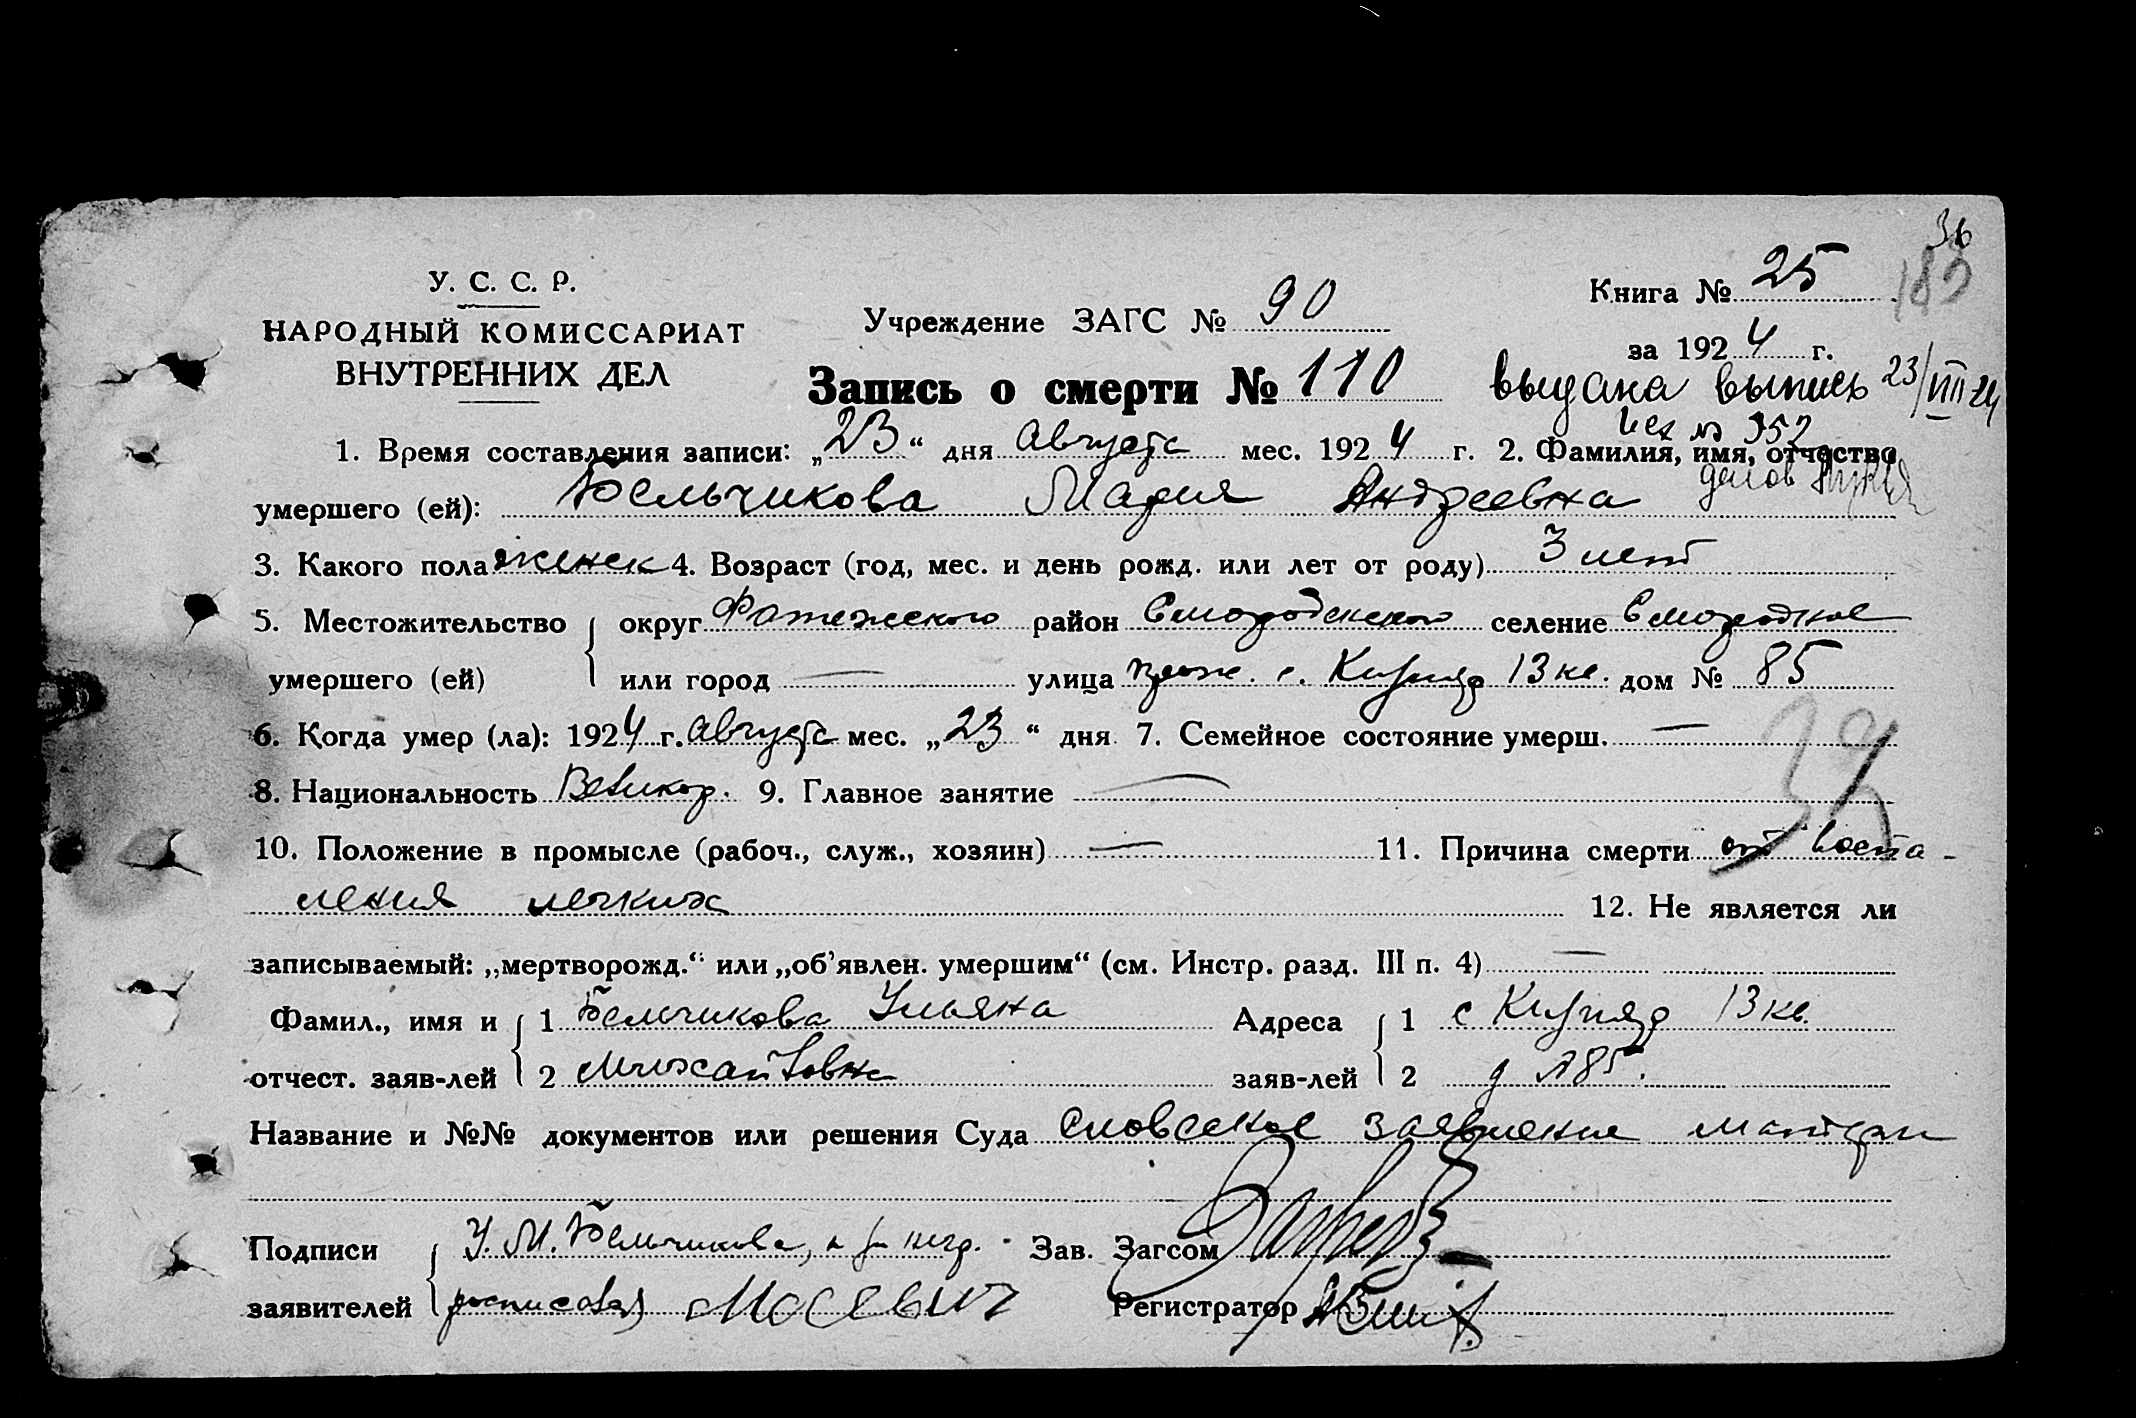 36
183
У. С. С. Р.
НАРОДНЫЙ КОМИССАРИАТ
ВНУТРЕННИХ ДЕЛ
Учреждение ЗАГС № 90
Книга № 25
за 1924 г.
Запись о смерти № 110
выдана выпись 23/VIII 24
исх № 352
1. Время составления записи: „23“ дня Августа мес. 1924 г. 2. Фамилия, имя, отчество
умершего (ей): Бельчикова Мария Андреевна
3. Какого пола женск 4. Возраст (год, мес. и день рожд. или лет от роду) 3 лет
5. Местожительство округ Фатежского район Смородского селение Смородное
умершего (ей) или город — улица прож. с. 13 кв. дом № 85
6. Когда умер (ла): 1924 г. Августа мес. „23“ дня 7. Семейное состояние умерш. —
8. Национальность Великор. 9. Главное занятие —
10. Положение в промысле (рабоч., служ., хозяин) — 11. Причина смерти от воспа-
ления легких 12. Не является ли
записываемый: „мертворожд.“ или „об’явлен. умершим“ (см. Инстр. разд. III п. 4) —
Фамил., имя и 1 Бельчикова Ульяна Адреса 1 с 13 кв.
отчест. заяв-лей 2 Михайловна заяв-лей 2 д №85.
Название и №№ документов или решения Суда словесное заявление матери
Подписи У. М. Бельчикова, Зав. Загсом
заявителей росписался Мосевич Регистратор